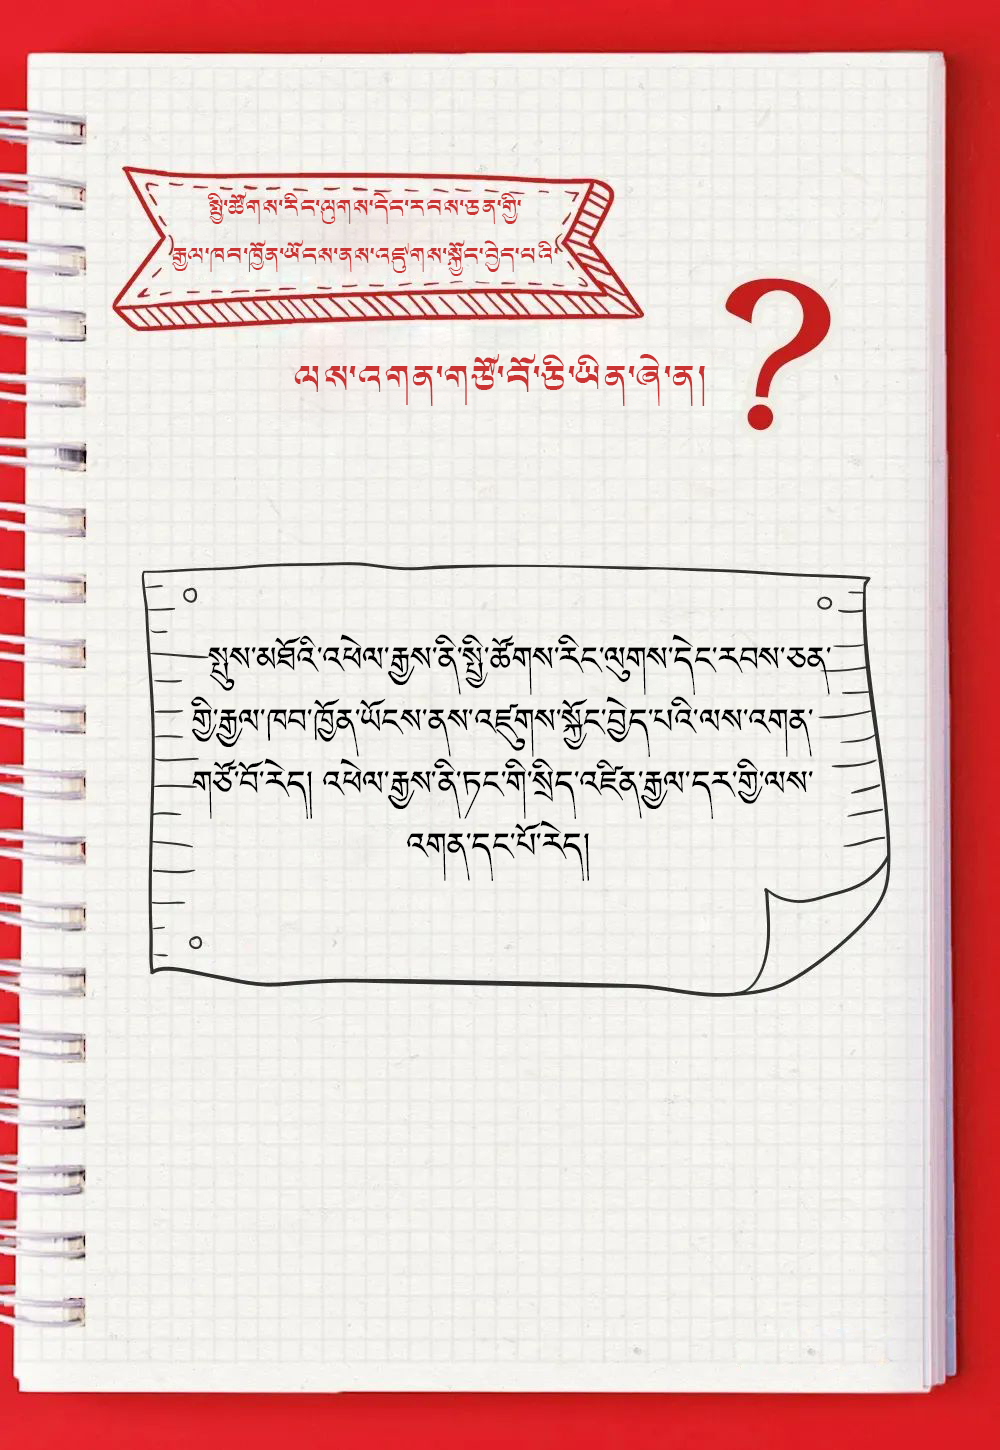 སྤྱི་ཚོགས་རིང་ལུགས་དེང་རབས་ཅན་གྱི་
རྒྱལ་ཁབ་ཁྱོན་ཡོངས་ནས་འཛུགས་སྐྱོང་བྱེད་པའི་
ལས་འགན་གཙོ་བོ་ཅི་ཡིན་ཞེ་ན།
?
སྤུས་མཐོའི་འཕེལ་རྒྱས་ནི་སྤྱི་ཚོགས་རིང་ལུགས་དེང་རབས་ཅན་
གྱི་རྒྱལ་ཁབ་ཁྱོན་ཡོངས་ནས་འཛུགས་སྐྱོང་བྱེད་པའི་ལས་འགན་
གཙོ་བོ་རེད། འཕེལ་རྒྱས་ནི་ཏང་གི་སྲིད་འཛིན་རྒྱལ་དར་གྱི་ལས་
འགན་དང་པོ་རེད།